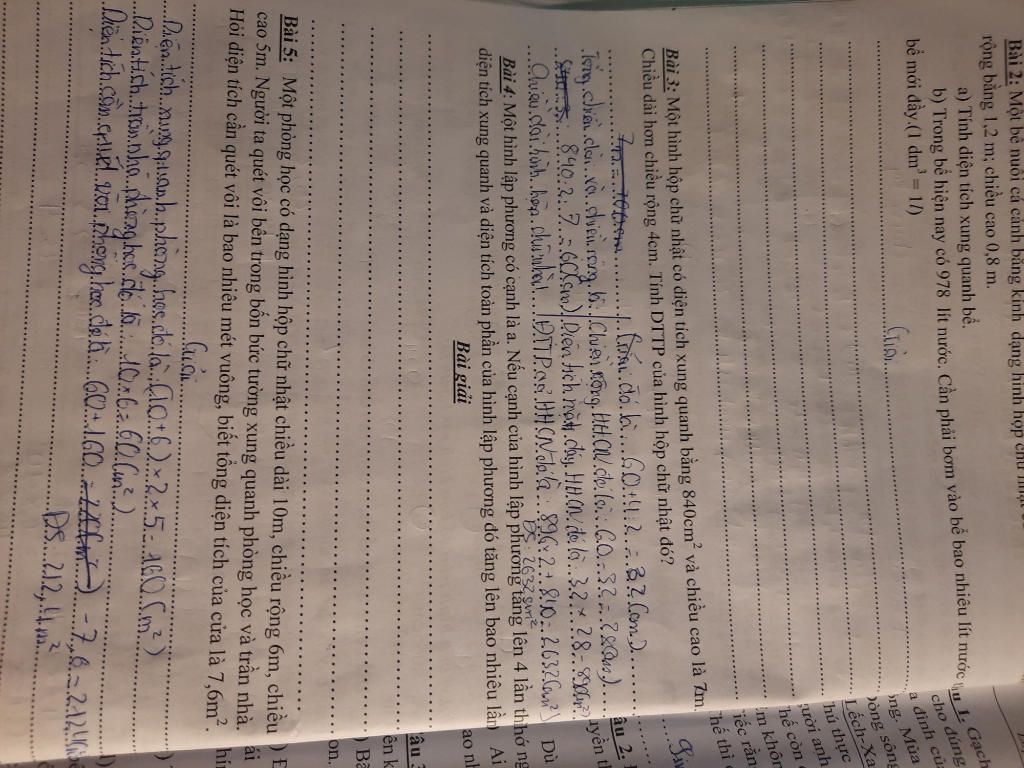 Bài 2: Một bể nuôi cá cảnh bằng kính dạng hình hộp chữ nhật
rộng bằng 1,2 m; chiều cao 0,8 m.
a) Tính diện tích xung quanh bể.
b) Trong bể hiện nay có 978 lít nước. Cần phải bơm vào bể bao nhiêu lít nước
bể mới đầy.(1 dm³ = 1l)
Giải
Bài 3: Một hình hộp chữ nhật có diện tích xung quanh bằng 840cm² và chiều cao là 7m.
Chiều dài hơn chiều rộng 4cm. Tính DTTP của hình hộp chữ nhật đó?
7m = 700cm
Tổng chiều dài và chiều rộng là:
840:2:7 = 60(cm)
Chiều dài hình hộp chữ nhật
60+4:2 = 32(cm)
Chiều rộng HHCN đó là: 60-32=28(cm)
Diện tích mặt đáy HHCN đó là: 32×28=896(cm²)
DTTP của HHCN đó là: 896×2+840=2632(cm²)
ĐS: 2632cm²
Bài 4. Một hình lập phương có cạnh là a. Nếu cạnh của hình lập phương tăng lên 4 lần thì
diện tích xung quanh và diện tích toàn phần của hình lập phương đó tăng lên bao nhiêu lần
Bài giải
Bài 5: Một phòng học có dạng hình hộp chữ nhật chiều dài 10m, chiều rộng 6m, chiều
cao 5m. Người ta quét vôi bên trong bốn bức tường xung quanh phòng học và trần nhà.
Hỏi diện tích cần quét vôi là bao nhiêu mét vuông, biết tổng diện tích của cửa là 7,6m²
Giải
Diện tích xung quanh phòng học đó là: (10+6)×2×5=160(m²)
Diện tích trần nhà phòng học đó là: 10×6=60(m²)
Diện tích cần quét vôi phòng học đó là: 60+160 - 7,6=212,4(m²)
ĐS: 212,4m²